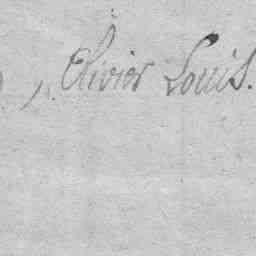 , Olivier Louis.